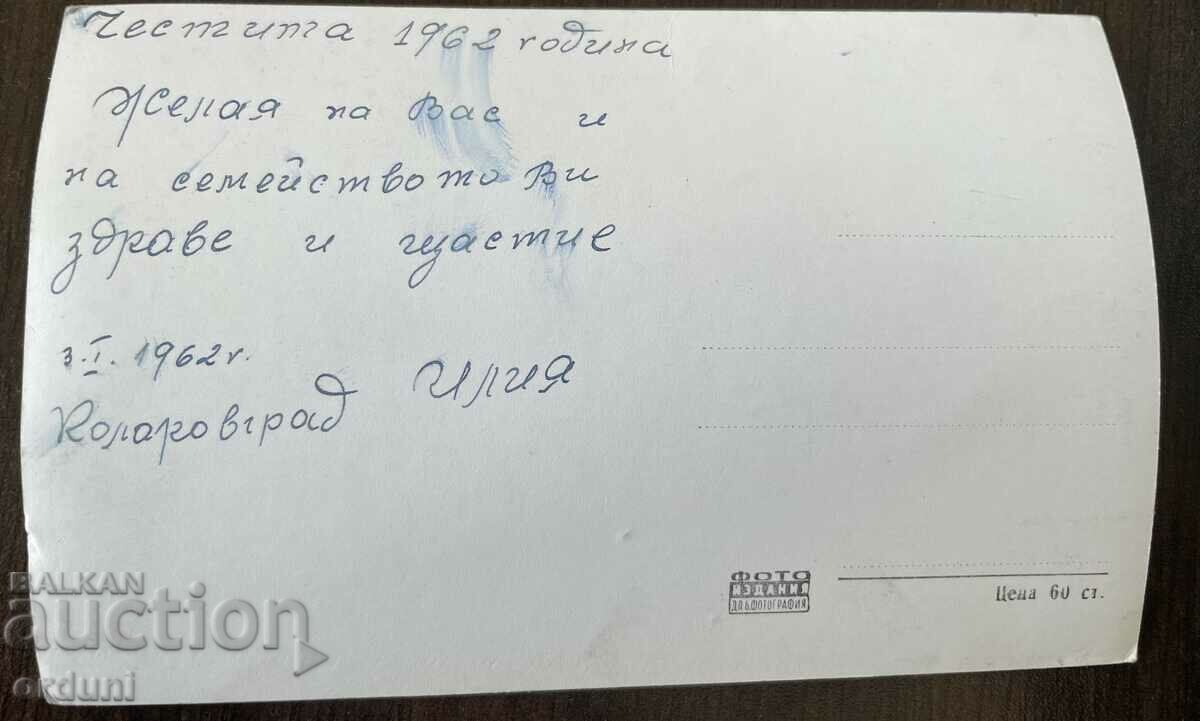 Честита 1962 година
Желая на Вас и
на семейството Ви
здраве и щастие
3.I.1962г.
Илия
Коларовград
ФОТО
ИЗДАНИЯ
ДП БЪЛ ФОТОГРАФИЯ
Цена 60 ст.
BALKAN
auction
orduni